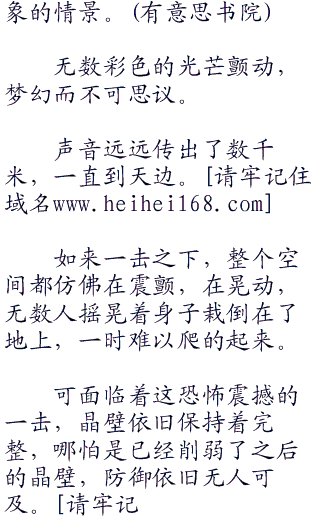 象的情景。(有意思书院)
无数彩色的光芒颤动，
梦幻而不可思议。
声音远远传出了数千
米，一直到天边。[请牢记住
域名www.heihei168.com]
如来一击之下，整个空
间都仿佛在震颤，在晃动，
无数人摇晃着身子栽倒在了
地上，一时难以爬的起来。
可面临着这恐怖震撼的
一击，晶壁依旧保持着完
整，哪怕是已经削弱了之后
的晶壁，防御依旧无人可
及。[请牢记